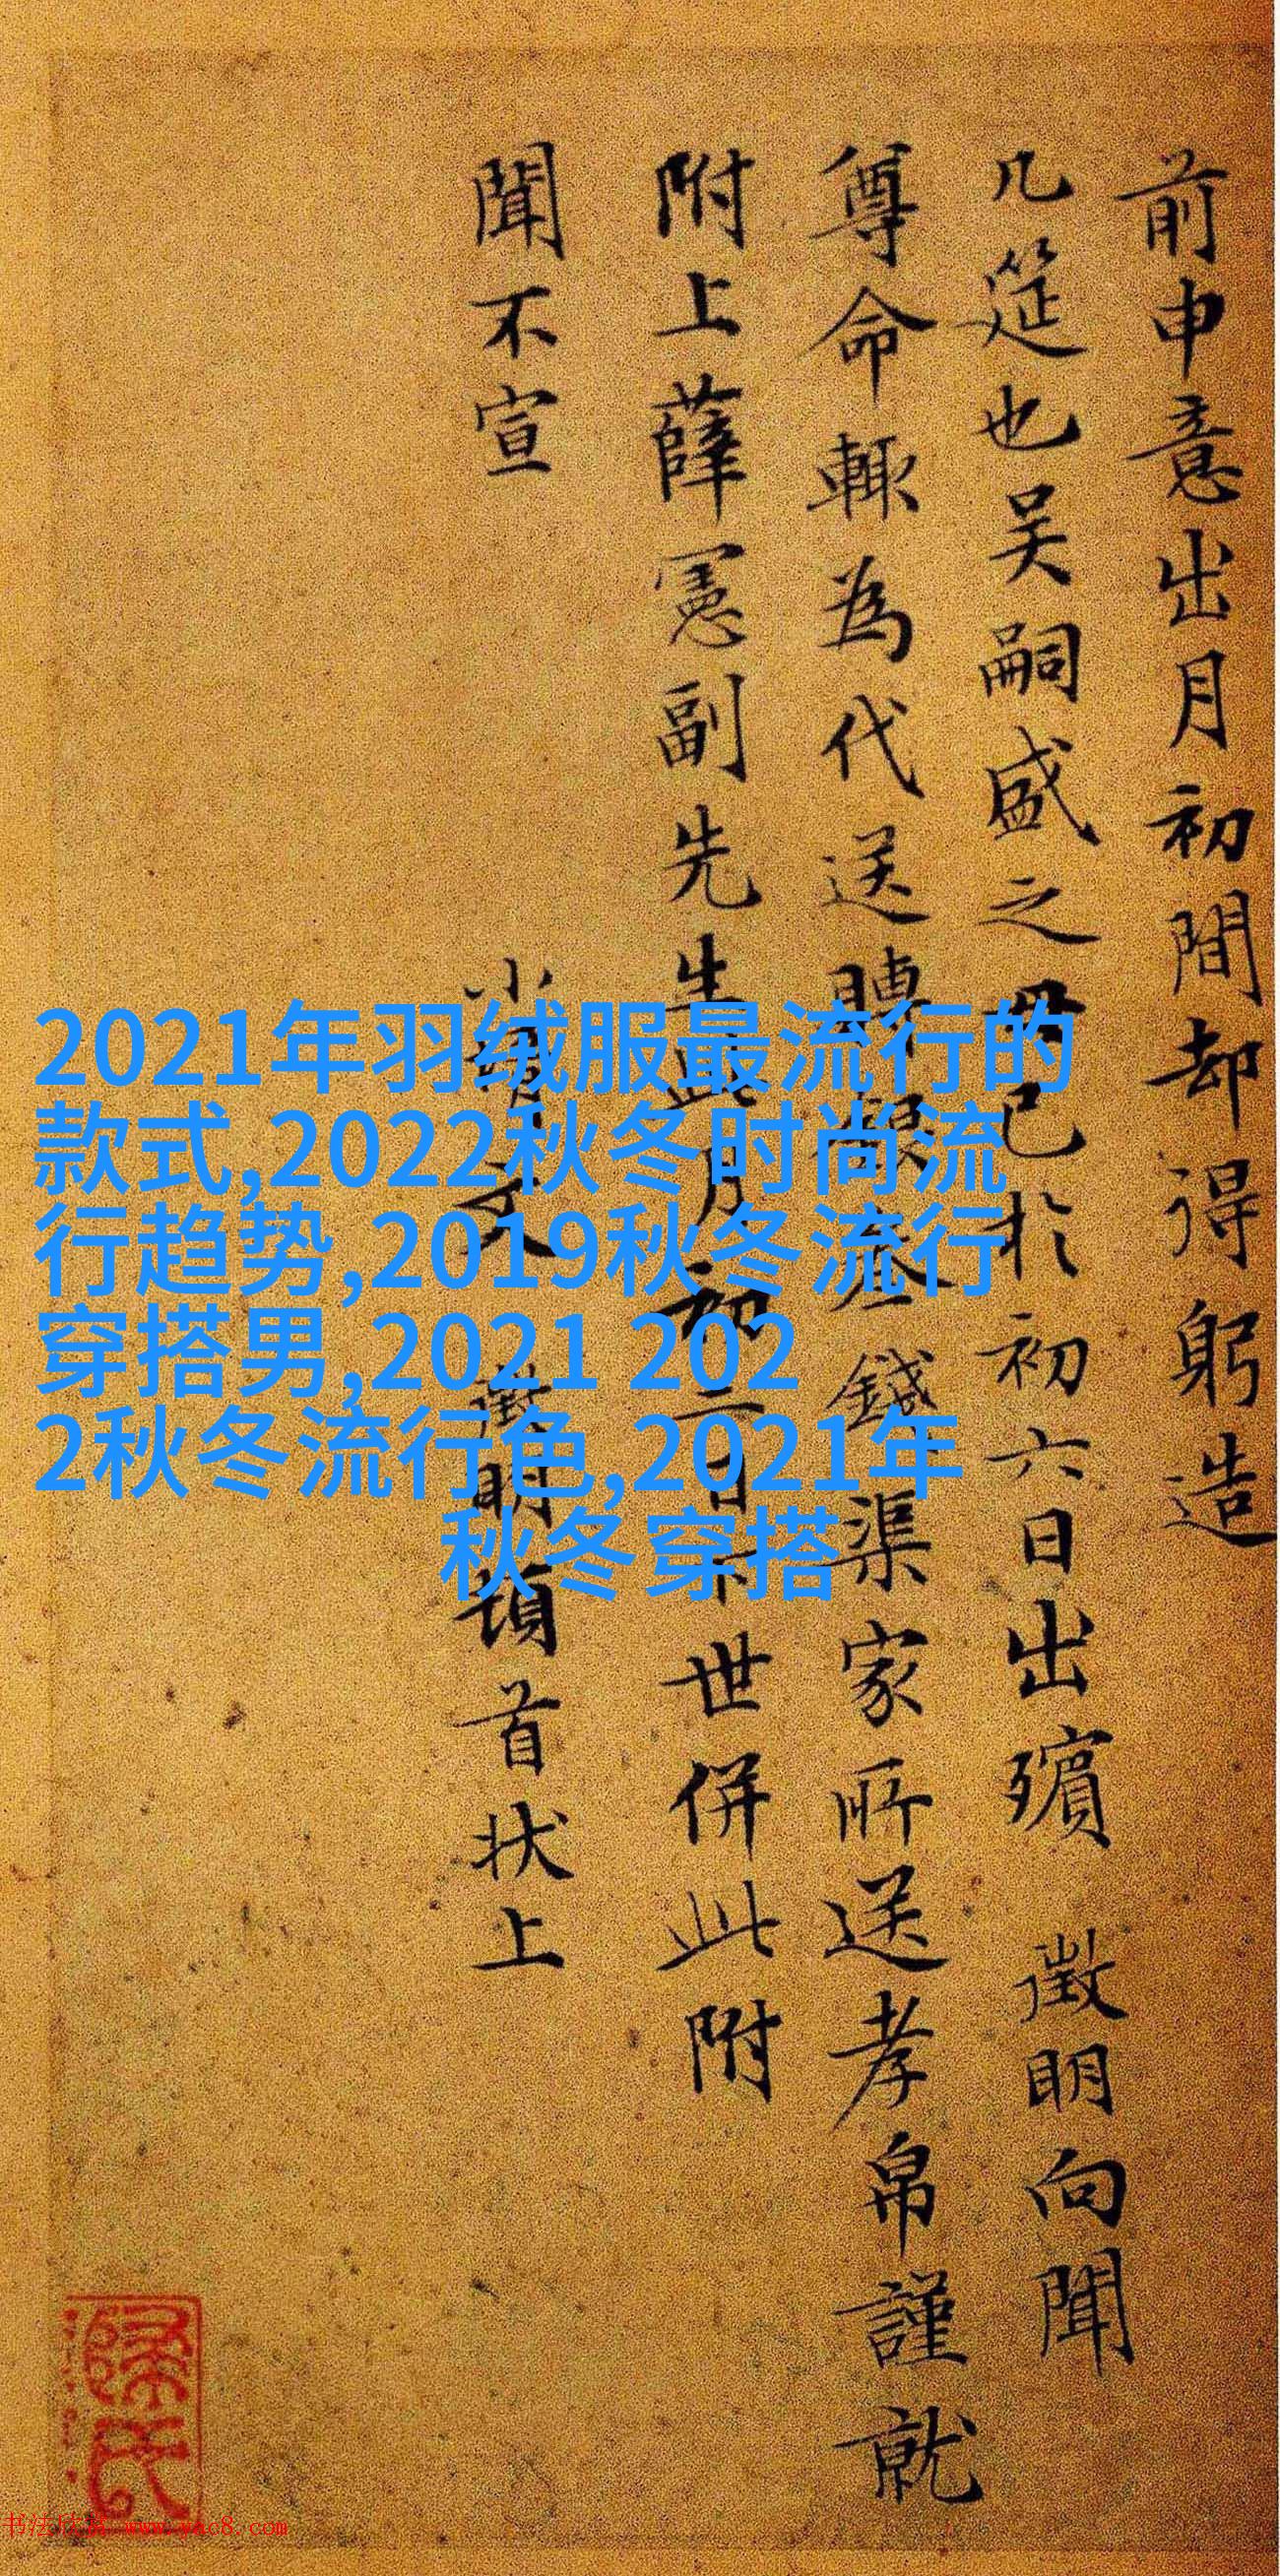 前申意出月初間却得躬造
几筵也吴嗣盛之 已於初六日出殯 徵明向聞
尊命輙為代送賻銀叁錢渠家所送孝帛謹就
附上薛憲副先生此月初二日 世併此附
聞不宣
徵明頓首狀上
2021年羽绒服最流行的
款式,2022秋冬时尚流
行趋势,2019秋冬流行
穿搭男,2021 202
2秋冬流行色,2021年
秋冬穿搭
书法欣赏 www.yac8.com